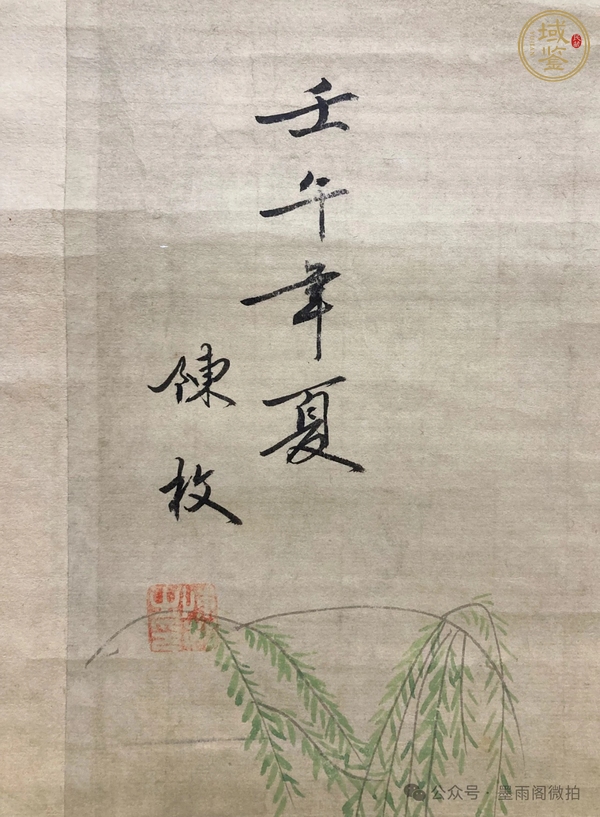 域鉴
壬午年夏
陳枚
公众号·墨雨阁微拍